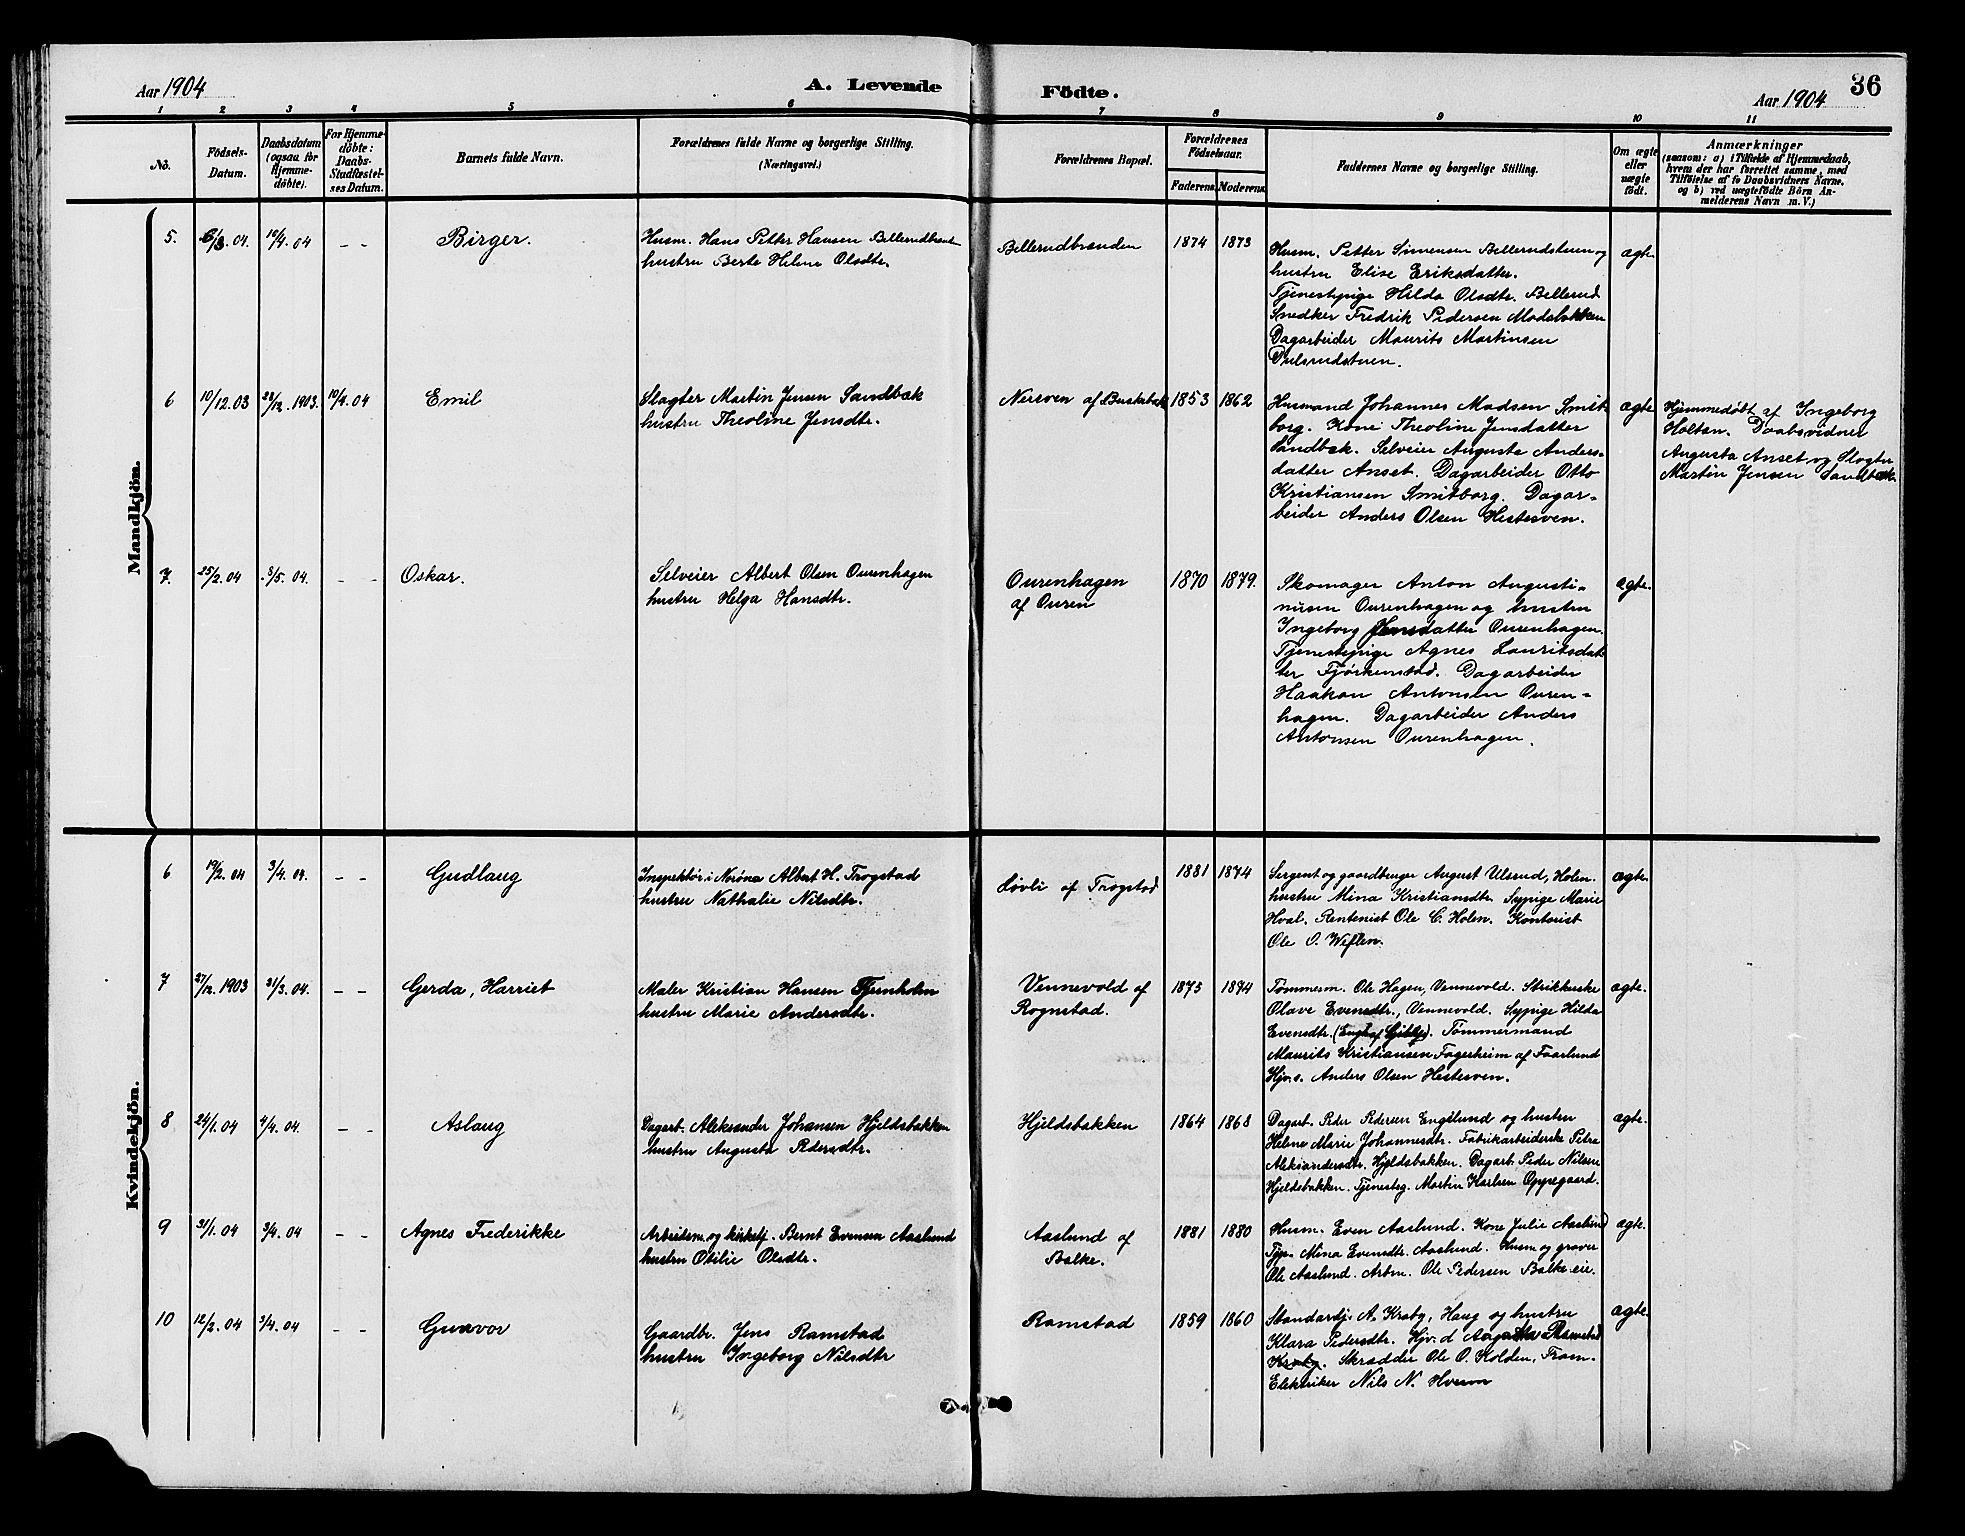 Aar 1904
A. Levende Födte.
Aar 1904
36
1 2 3 4 5 6 7 8 9 10 11
No.
Födsels-
Datum.
Daabsdatum
(ogsaa for
Hjemme-
döbte).
For Hjemme-
döbte:
Daabs-
Stadfæstel-
ses Datum.
Barnets fulde Navn.
Forældrenes fulde Navne og borgerlige Stilling.
(Næringsvei.)
Forældrenes Bopæl.
Forældrenes
Födselsaar.
Faderens. Moderens.
Faddernes Navne og borgerlige Stilling.
Om ægte
eller
uægte
födt.
Anmærkninger
(saasom: a) i Tilfælde af Hjemmedaab,
hvem der har forrettet samme, med
Tilföielse af to Daabsvidners Navne,
og b) ved uægtefödte Börn An-
melderens Navn m. V.)
Mandkjön.
5. 6/3. 04. 10/4. 04 - - Birger.
Husm. Hans Petter Hansen
hustru Berte Helene Olsdtr.
Billerudbrænden
1874 1873
Husm. Petter Simensen Billerudstuen og
hustru Elise Eriksdatter.
Tjenestepige Hilda Olsdtr. Billerud
Snedker Fredrik Pedersen
Dagarbeider Maurits Martinsen
ægte.
6 10/12. 03 28/12. 1903. 10/4. 04 Emil
Slagter Martin Jensen Sandbæk
hustru Theoline Jensdtr.
Nersven af
1853 1862
Husmand Johannes Madsen Smit-
borg. Kone Theoline Jensdatter
Sandbæk. Selveier Augusta Anders-
datter Anset. Dagarbeider Otto
Kristiansen Smitborg. Dagar-
beider Anders Olsen Hestesven.
ægte
Hjemmedøbt af Ingeborg
Holtan. Daabsvidner
Augusta Anset og Slagter
Martin Jensen Sandbæk.
7. 25/2. 04 8/5. 04. - - Oskar.
Selveier Albert Olsen Ourenhagen
hustru Helga Hansdtr.
Ourenhagen
af Ouren
1870 1879.
Skomager Anton Augusti-
nusen Ourenhagen og hustru
Ingeborg Jensdatter Ourenhagen.
Tjenestepige Agnes Lauritsdat-
ter Fjørkenstad. Dagarbeider
Haakon Antonsen Ouren-
hagen. Dagarbeider Anders
Antonsen Ourenhagen.
ægte.
Kvindekjön.
6 19/2. 04 3/4. 04. - - Gudlaug
Inspektør i Norøna Albert H. Trogstad
hustru Nathalie Nilsdtr.
Løvli af Trogstad
1881 1874
Sergent og gaardbruger August Ulsrud, Holen.
hustru Mina Kristiansdtr. Sypige Marie
Hval. Rentenist Ole C. Holen. Kontorist
Ole O. Weflen.
ægte.
7 27/12. 1903 31/3. 04. - - Gerda, Harriet
Maler Kristian Hansen Tjernholm
hustru Marie Andersdtr.
Vennevold af
Rognstad.
1875 1874
Tømmerm. Ole Hagen, Vennevold. Strikkerske
Olave Evensdtr., Vennevold. Sypige Hilda
Evensdtr. Tømmermand
Maurits Kristiansen Fagerheim af Faarlund
Hjv.s. Anders Olsen Hestesven.
ægte.
8 24/1. 04 4/4. 04. - - Aslaug
Dagarb. Aleksander Johansen Hjeldsbakken
hustru Augusta Pedersdtr.
Hjeldsbakken
1864 1868
Dagarb. Peder Pedersen Englund og hustru
Helene Marie Johannesdtr. Fabrikarbeiderske Petra
Aleksandersdtr. Hjeldsbakken. Dagarb. Peder Nilsen
Hjeldsbakken. Tjenesteg. Martin Karlsen Oppegaard.
ægte.
9 31/1. 04 3/4. 04 - - Agnes Frederikke
Arbeidsm. og kirketj. Bernt Evensen Aaslund
hustru Otilie Olsdtr.
Aaslund af
Balke.
1881 1880
Husm. Even Aaslund. Kone Julie Aaslund
Tjp. Mina Evensdtr. Aaslund. Husm og graver
Ole Aaslund. Arbm. Ole Pedersen Balke-eie.
ægte.
10 12/2. 04 3/4. 04 - - Gunvor
Gaardbr. Jens Ramstad
hustru Ingeborg Nilsdtr
Ramstad
1859 1860
Standardj. A. Kraby, Haug og hustru
Klara Pedersdtr. Hjv. d Aagot Ramstad
Kraby. Skrædder Ole O. Kolden, Fram.
Elektriker Nils N. Hveem
ægte.